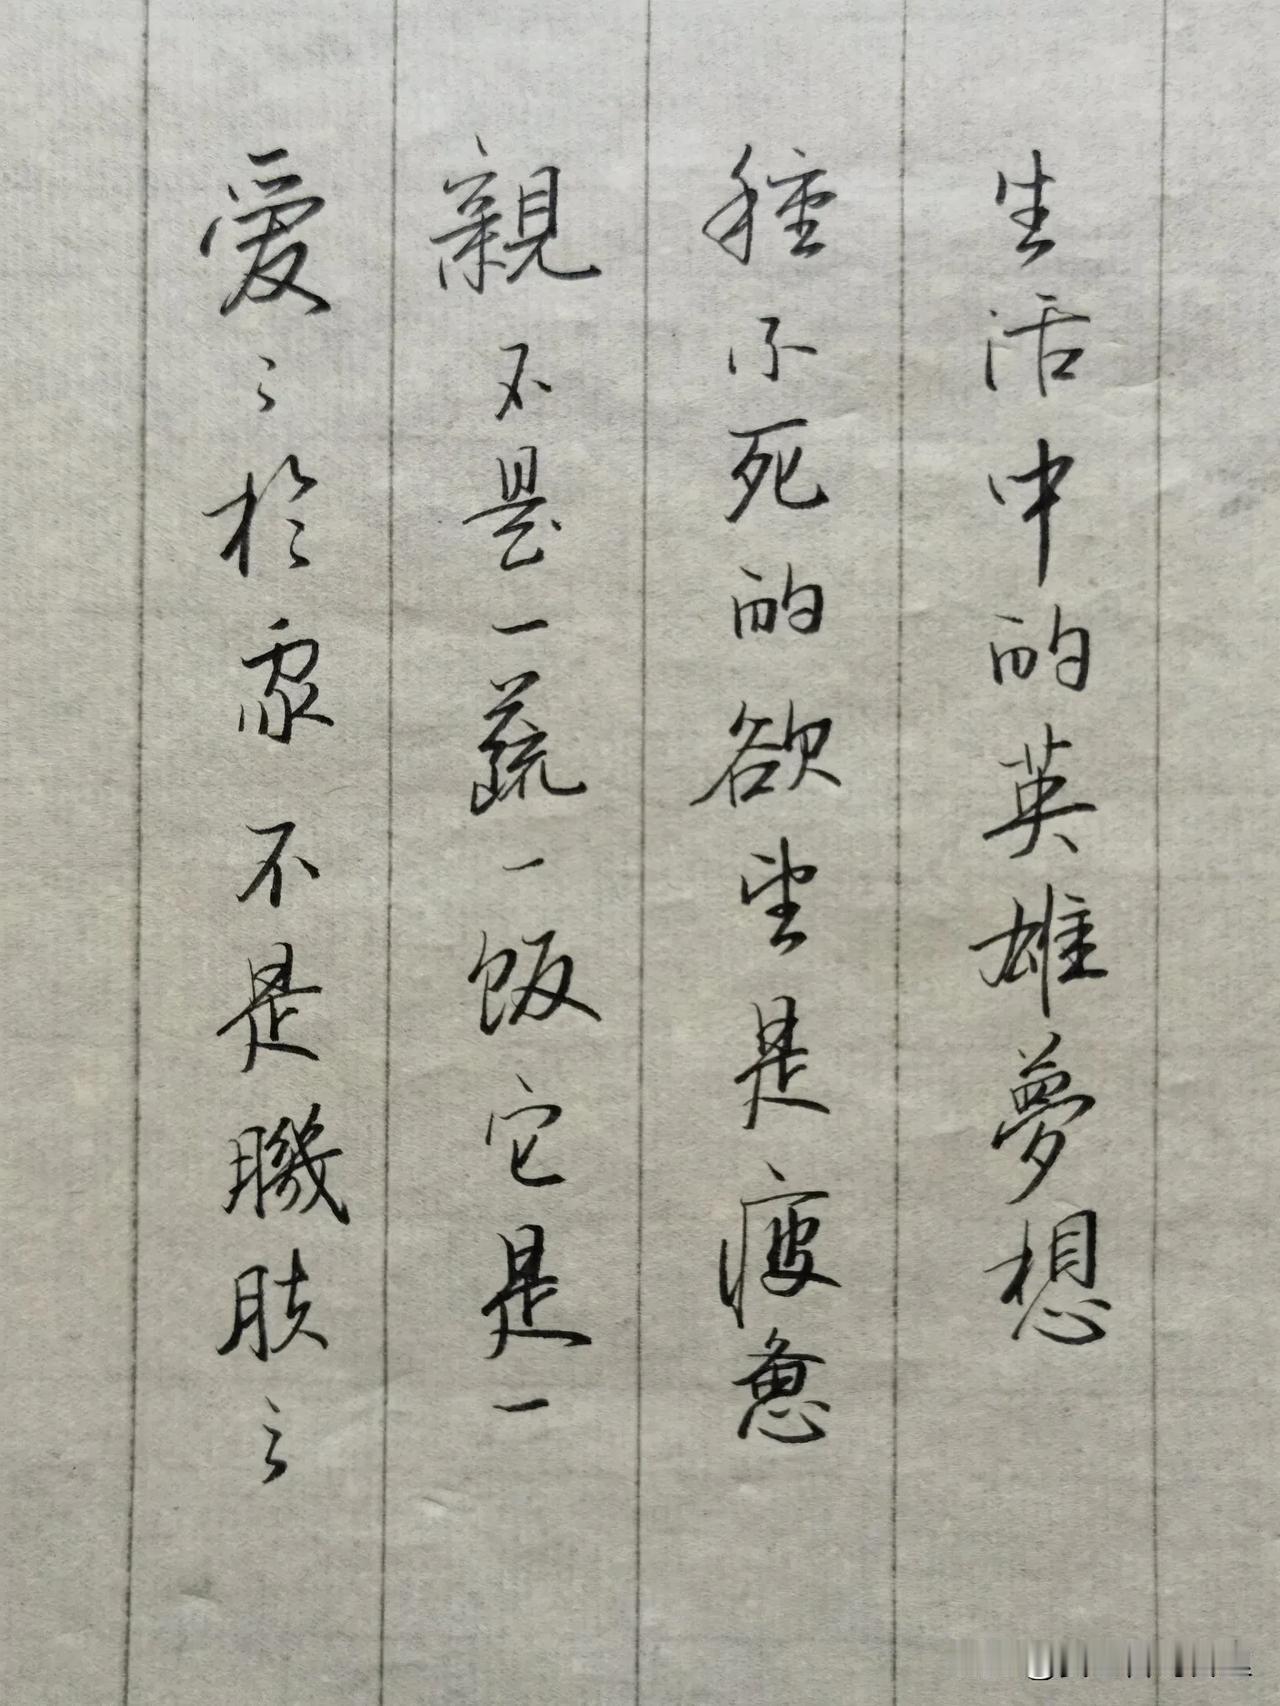 爱之於衆不是機肤之
親不是一蔬一飯它是一
種不死的欲望是疲惫
生活中的英雄夢想